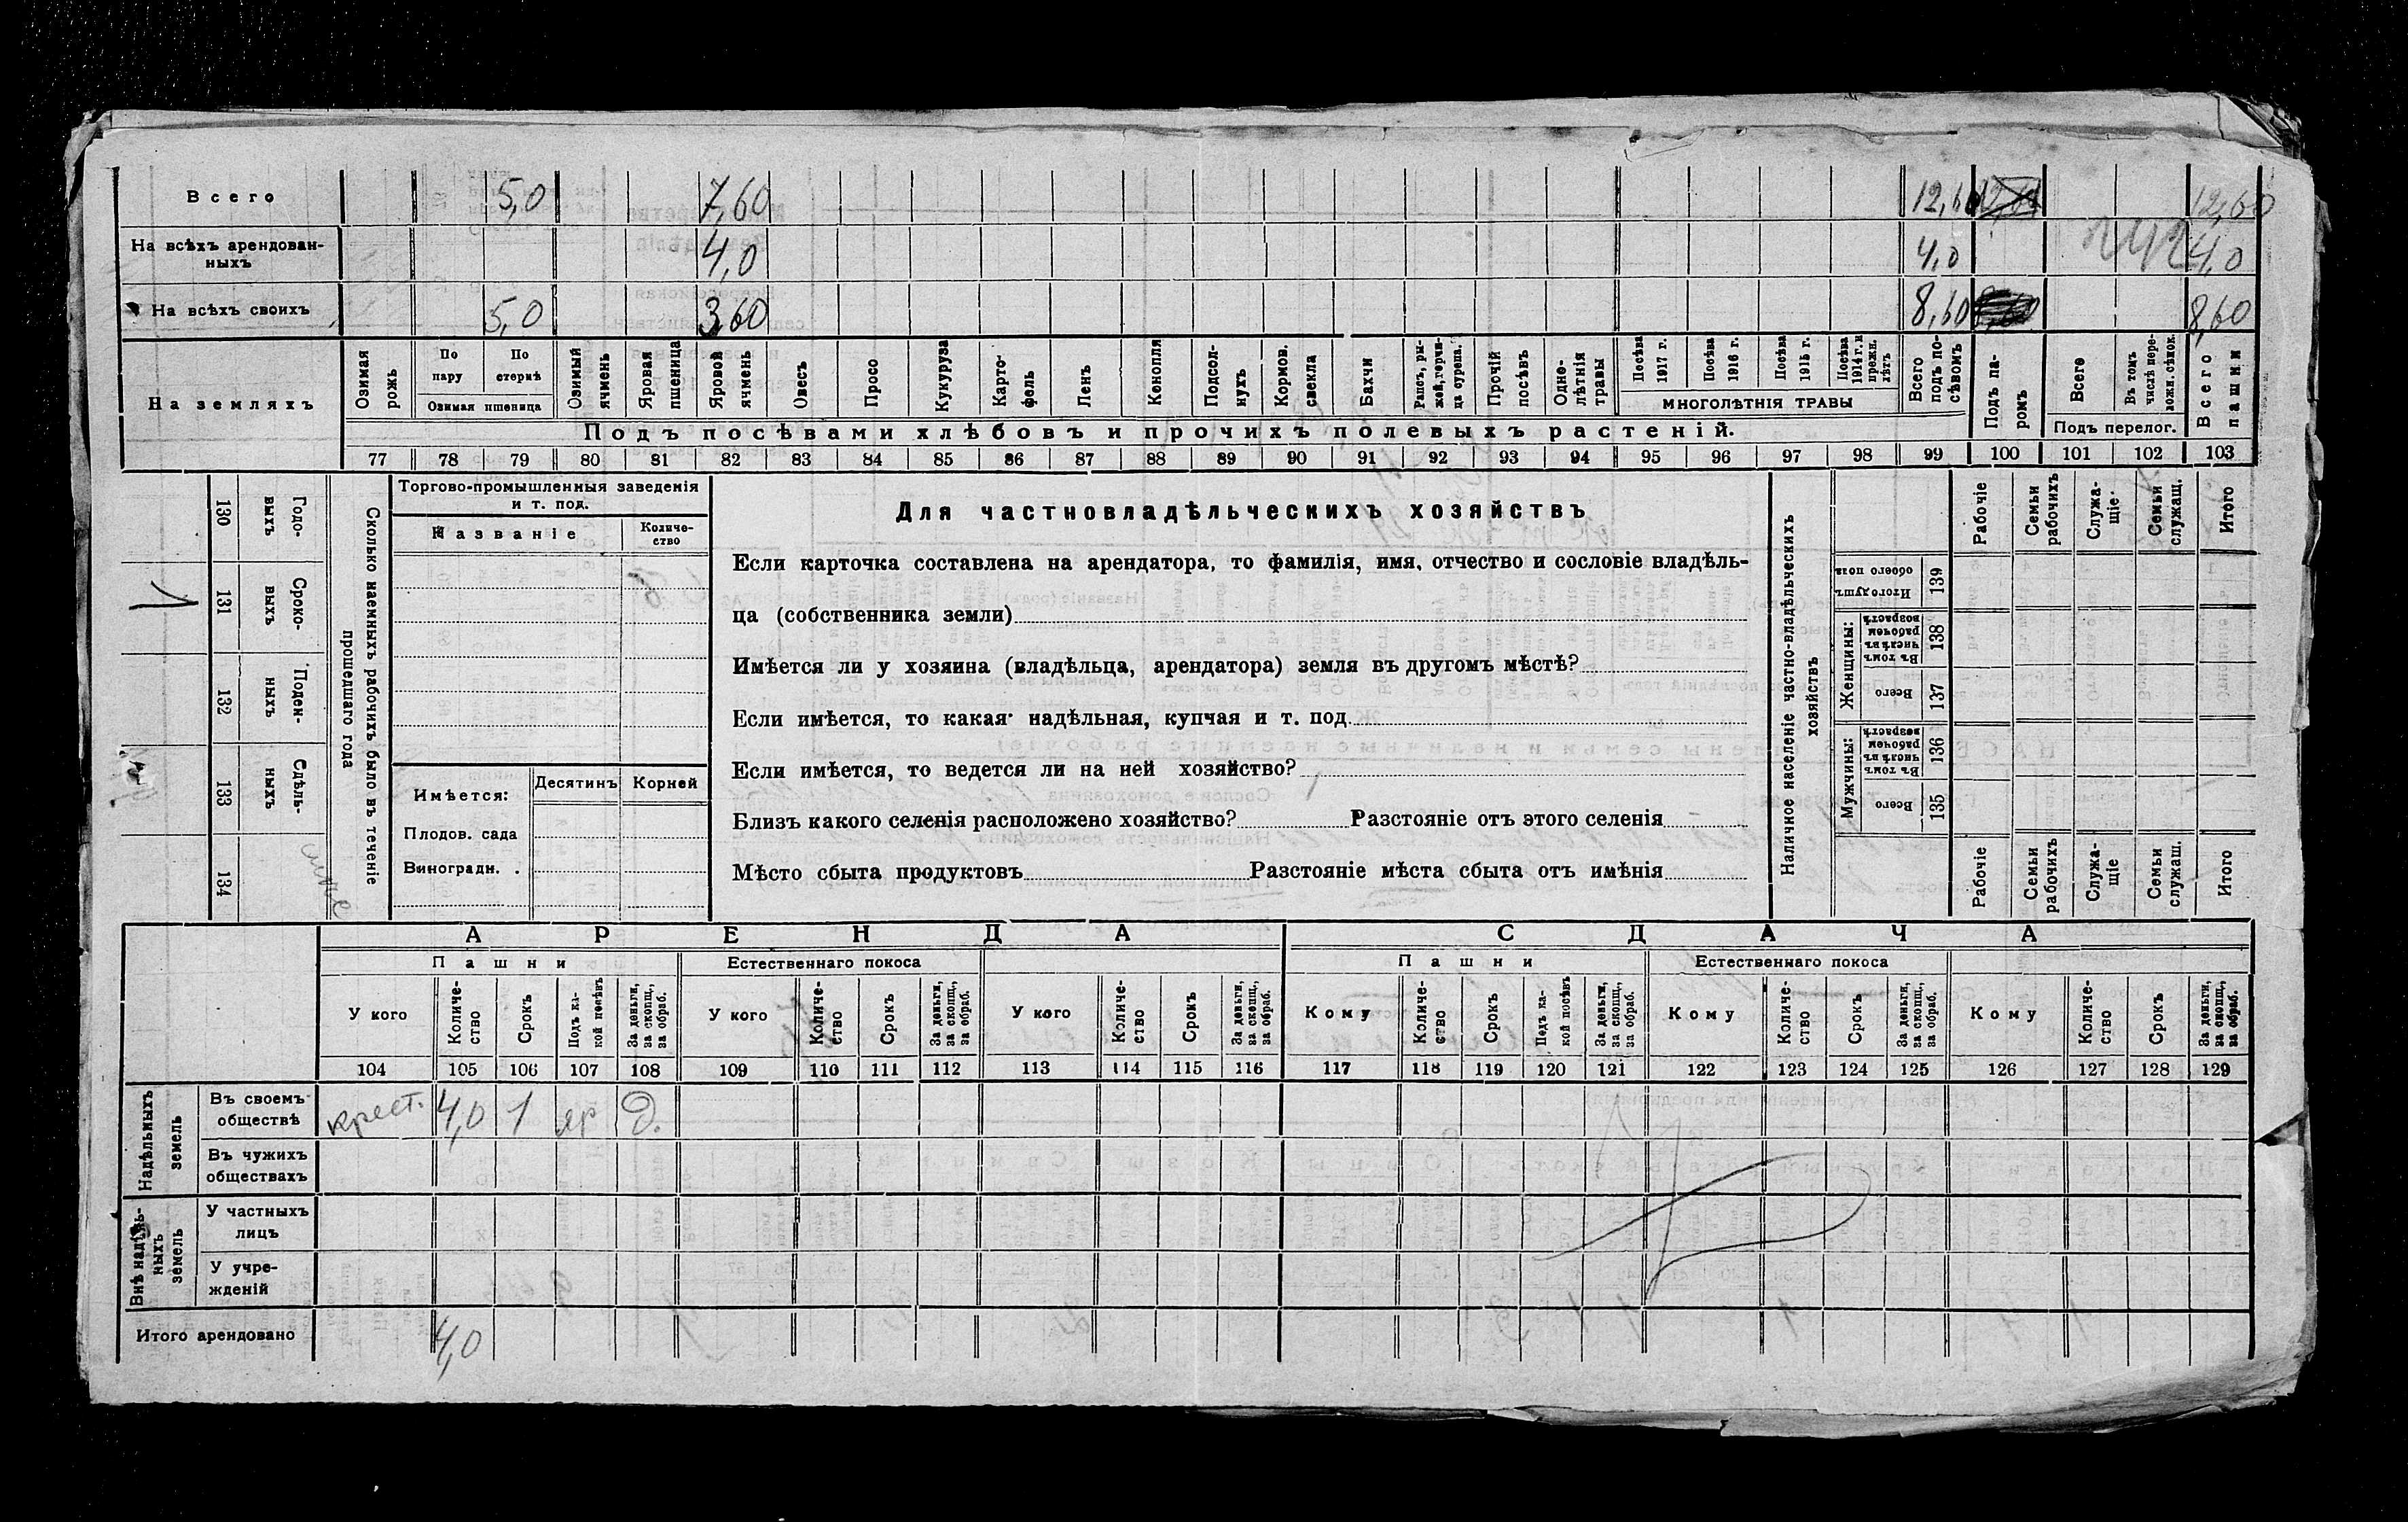 Всего 5,0 7,60 12,60 12,60
На всѣхъ арендован-
ныхъ 4,0 4,0 4,0
На всѣхъ своихъ 5,0 3,60 8,60 8,60
На земляхъ
Озимая рожь
По пару
По стернѣ
Озимая пшеница
Озимый ячмень
Яровая пшеница
Яровой ячмень
Овесъ
Просо
Кукуруза
Карто-
фель
Ленъ
Конопля
Подсол-
нухъ
Кормов. свекла
Бахчи
Рапсъ, ры-
жей, горчи-
ца сурепа.
Прочій посѣвъ
Одно-
лѣтнія травы
Посѣва 1917 г.
Посѣва 1916 г.
Посѣва 1915 г.
Посѣва 1914 г. и прежн. лѣтъ
МНОГОЛѢТНІЯ ТРАВЫ
Всего подъ по-
сѣвомъ
Подъ па-
ромъ
Всего
Въ томъ числѣ пере-
ложн. сѣнок.
Подъ перелог.
Всего пашни
Подъ посѣвами хлѣбовъ и прочихъ полевыхъ растеній.
77 78 79 80 81 82 83 84 85 86 87 88 89 90 91 92 93 94 95 96 97 98 99 100 101 102 103
Сколько наемныхъ рабочихъ было въ теченіе
прошедшаго года
Годо-
выхъ
130
Сроко-
выхъ
131
1
Поден-
ныхъ
132
Сдѣль-
ныхъ
133
134
Торгово-промышленныя заведенія
и т. под.
Названіе
Количе-
ство
Имѣется:
Десятинъ
Корней
Плодов. сада
Виноградн. .
Для частновладѣльческихъ хозяйствъ
Если карточка составлена на арендатора, то фамилія, имя, отчество и сословіе владѣль-
ца (собственника земли)
Имѣется ли у хозяина (владѣльца, арендатора) земля въ другомъ мѣстѣ?
Если имѣется, то какая: надѣльная, купчая и т. под.
Если имѣется, то ведется ли на ней хозяйство?
Близъ какого селенія расположено хозяйство? Разстояніе отъ этого селенія
Мѣсто сбыта продуктовъ Разстояніе мѣста сбыта отъ имѣнія
Наличное населеніе частно-владѣльческихъ
хозяйствъ
Рабочіе
Семьи рабочихъ
Служа-
щіе
Семьи служащ.
Итого
Итого душъ обоего пола
139
Женщины:
Въ томъ числѣ въ рабочем возрастѣ
138
Всего
137
Мужчины:
Въ томъ числѣ въ рабочем возрастѣ
136
Всего
135
Рабочіе
Семьи рабочихъ
Служа-
щіе
Семьи служащ.
Итого
АРЕНДА СДАЧА
Пашни Естественнаго покоса Пашни Естественнаго покоса
У кого
Количе-
ство
Срокъ
Подъ ка-
кой посѣвъ
За деньги, за скопщ., за обраб.
У кого
Количе-
ство
Срокъ
За деньги, за скопщ., за обраб.
У кого
Количе-
ство
Срокъ
За деньги, за скопщ., за обраб.
Кому
Количе-
ство
Срокъ
Подъ ка-
кой посѣвъ
За деньги, за скопщ., за обраб.
Кому
Количе-
ство
Срокъ
За деньги, за скопщ., за обраб.
Кому
Количе-
ство
Срокъ
За деньги, за скопщ., за обраб.
104 105 106 107 108 109 110 111 112 113 114 115 116 117 118 119 120 121 122 123 124 125 126 127 128 129
Надѣльныхъ
земель
Въ своемъ
обществѣ
крест. 4,0 1 яр д.
Въ чужихъ
обществахъ
Внѣ надѣль-
ныхъ
земель
У частныхъ
лицъ
У учре-
жденій
Итого арендовано 4,0